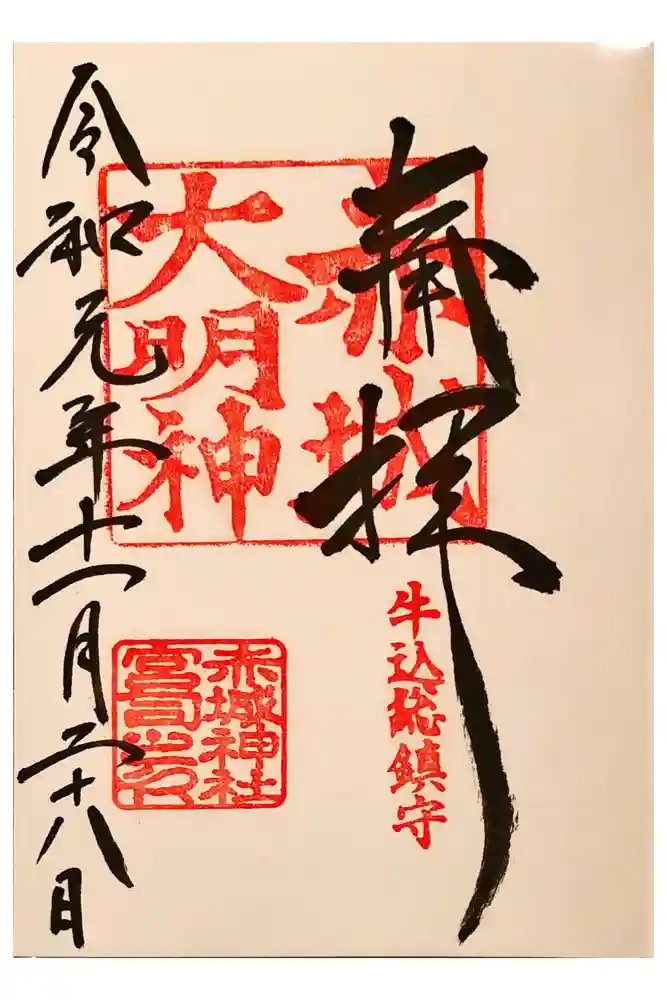 奉拝
赤城
大明神
牛込総鎮守
赤城神社
宮司之印
令和元年十一月二十八日